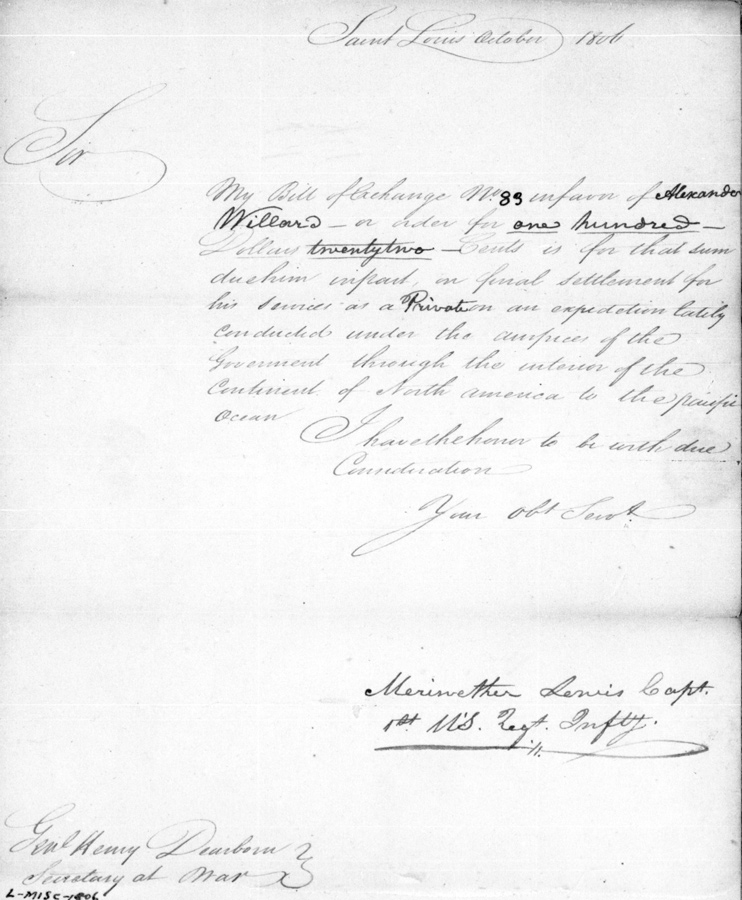 Saint Louis October 1806
Sir
My Bill of Exchange No. 83 in favor of Alexander
Willard — or order for one hundred —
Dollars twentytwo — Cents is for that sum
due him in part, or final settlement for
his services as a Private on an expedition lately
conducted under the auspices of the
Goverment through the interior of the
Continent of North america to the pacific
Ocean
I have the honor to be with due
Consideration
Your Obt Servt.
Meriwether Lewis Capt.
1st U'S. Regt. Infty.
Genl. Henry Dearborn
Secretary at War
L-MISC-1806